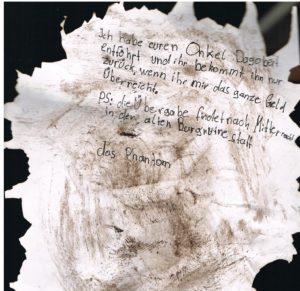 Ich habe euren Onkel Dagobert
entführt und ihr bekommt ihn nur
zurück, wenn ihr mir das ganze Geld
überreicht.
PS: die Übergabe findet nach Mitternacht
in der alten Burgruine statt
das Phantom